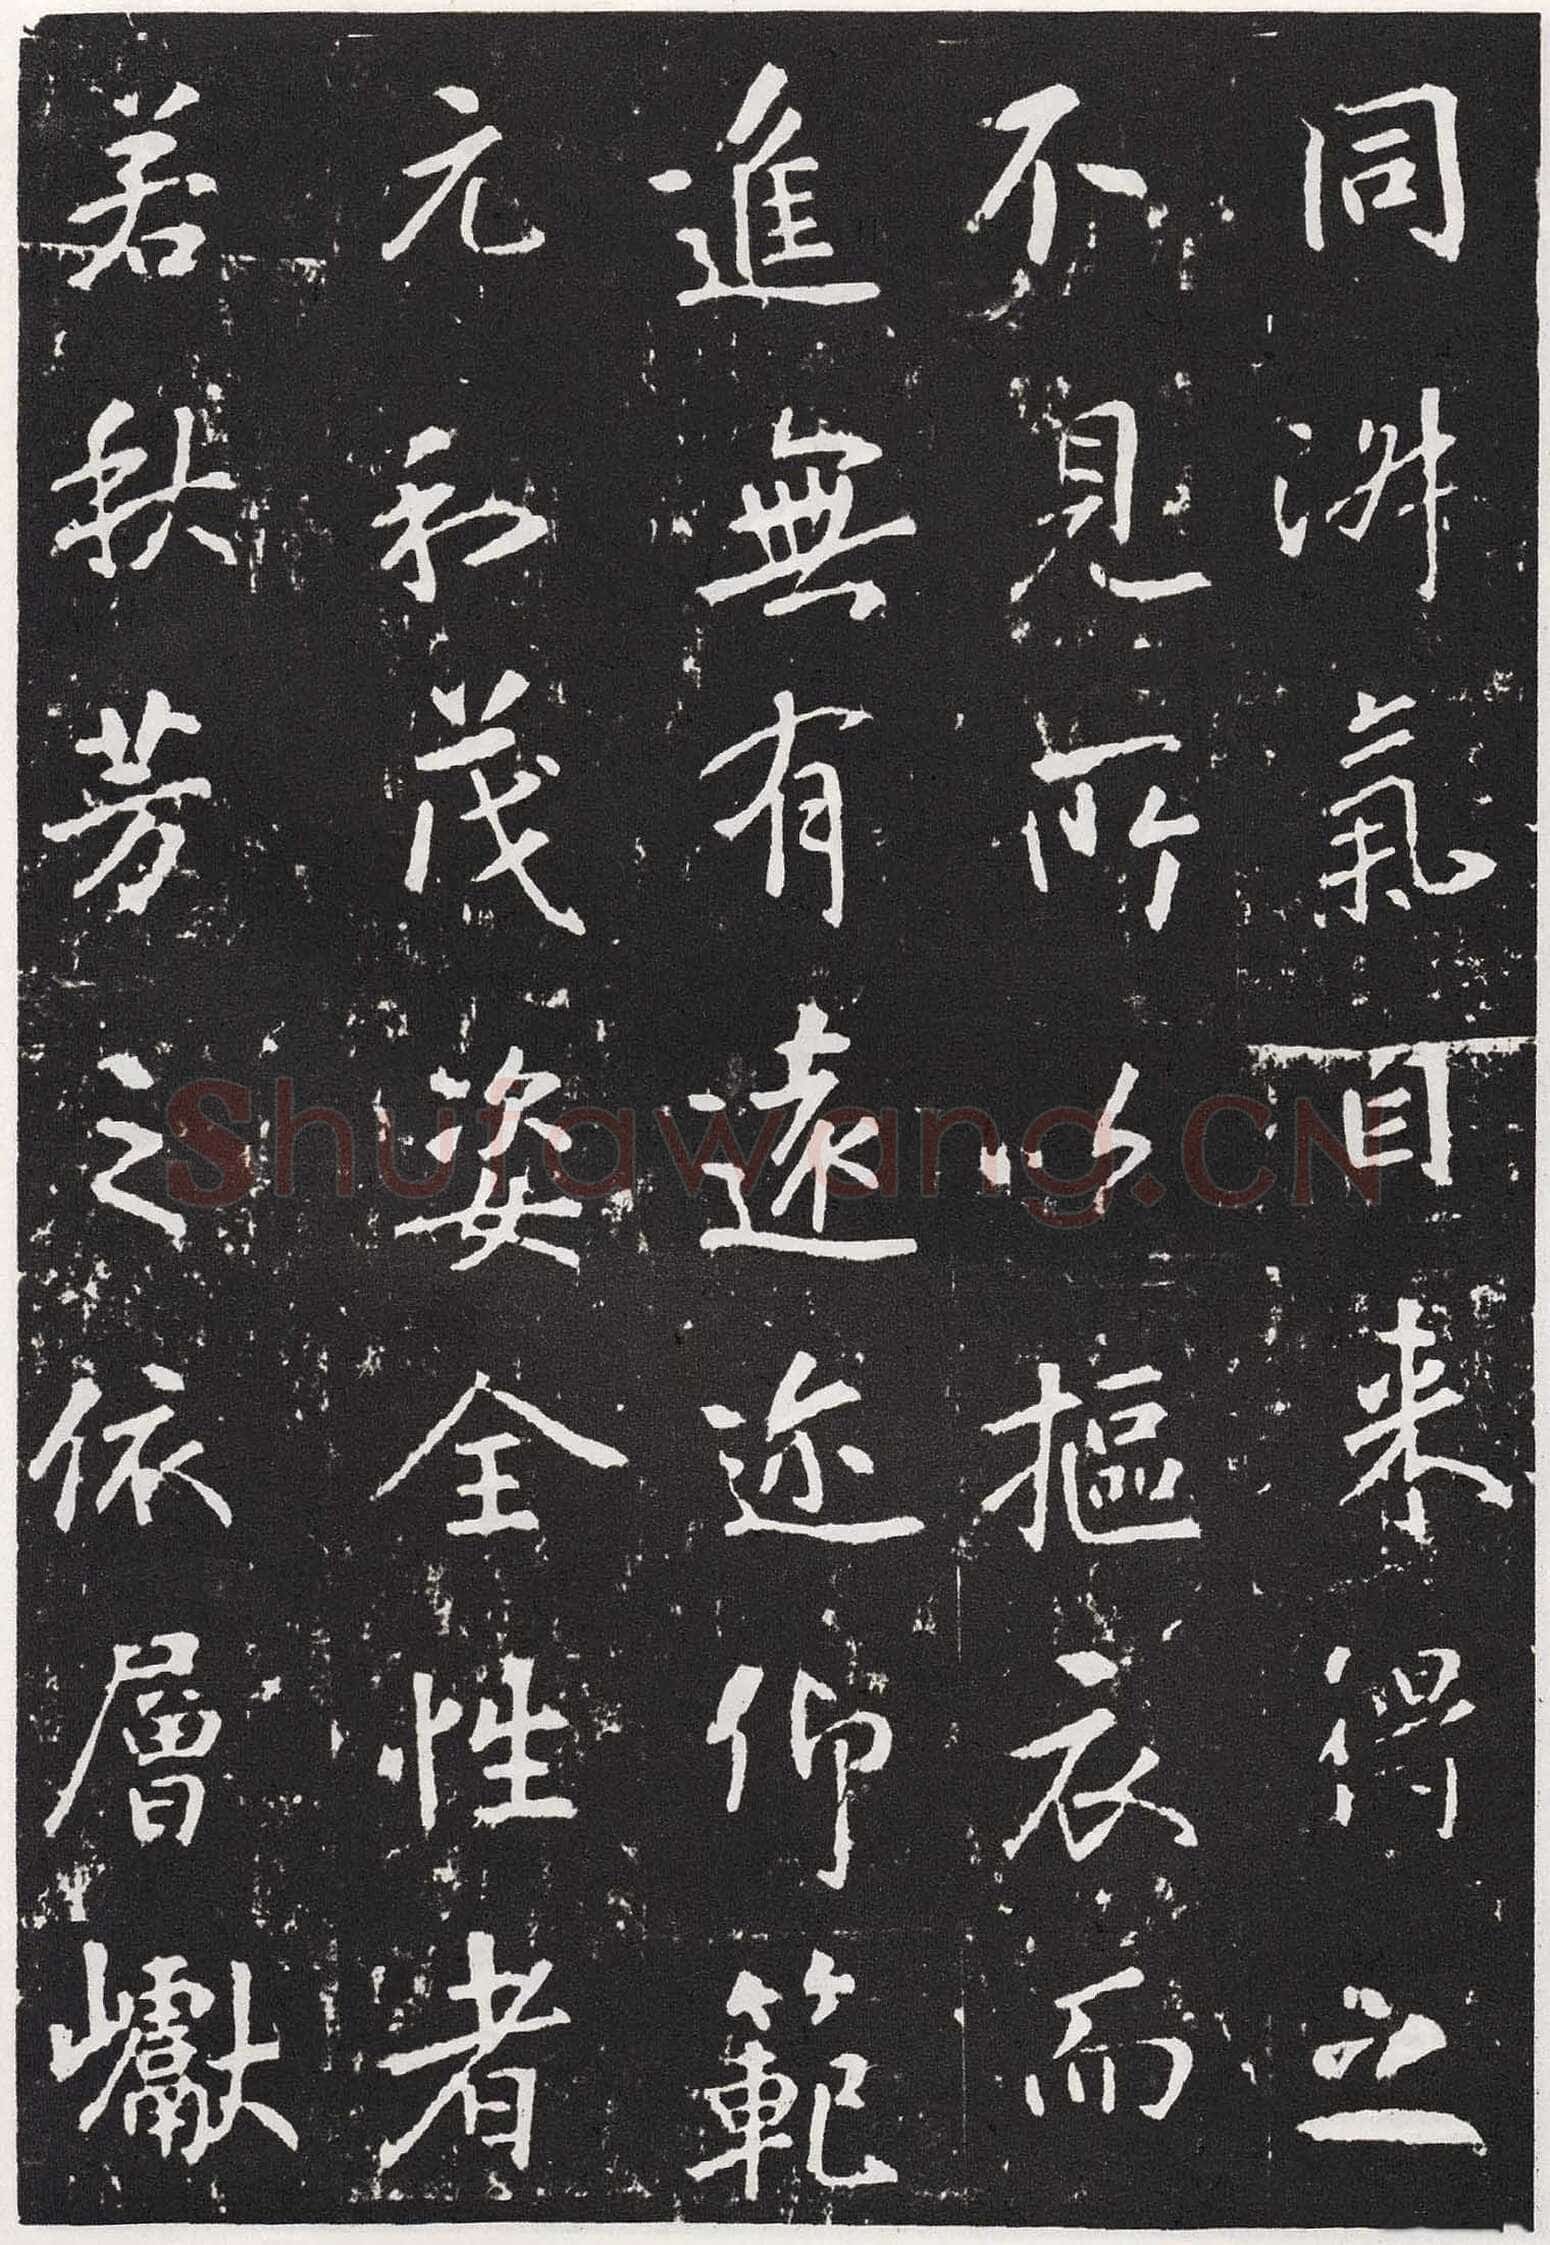 同渊氣自来得之
不見所以摳衣而
進無有遠迩仰範
元和茂姿全性者
若秋芳之依層巘
Shufawang.CN